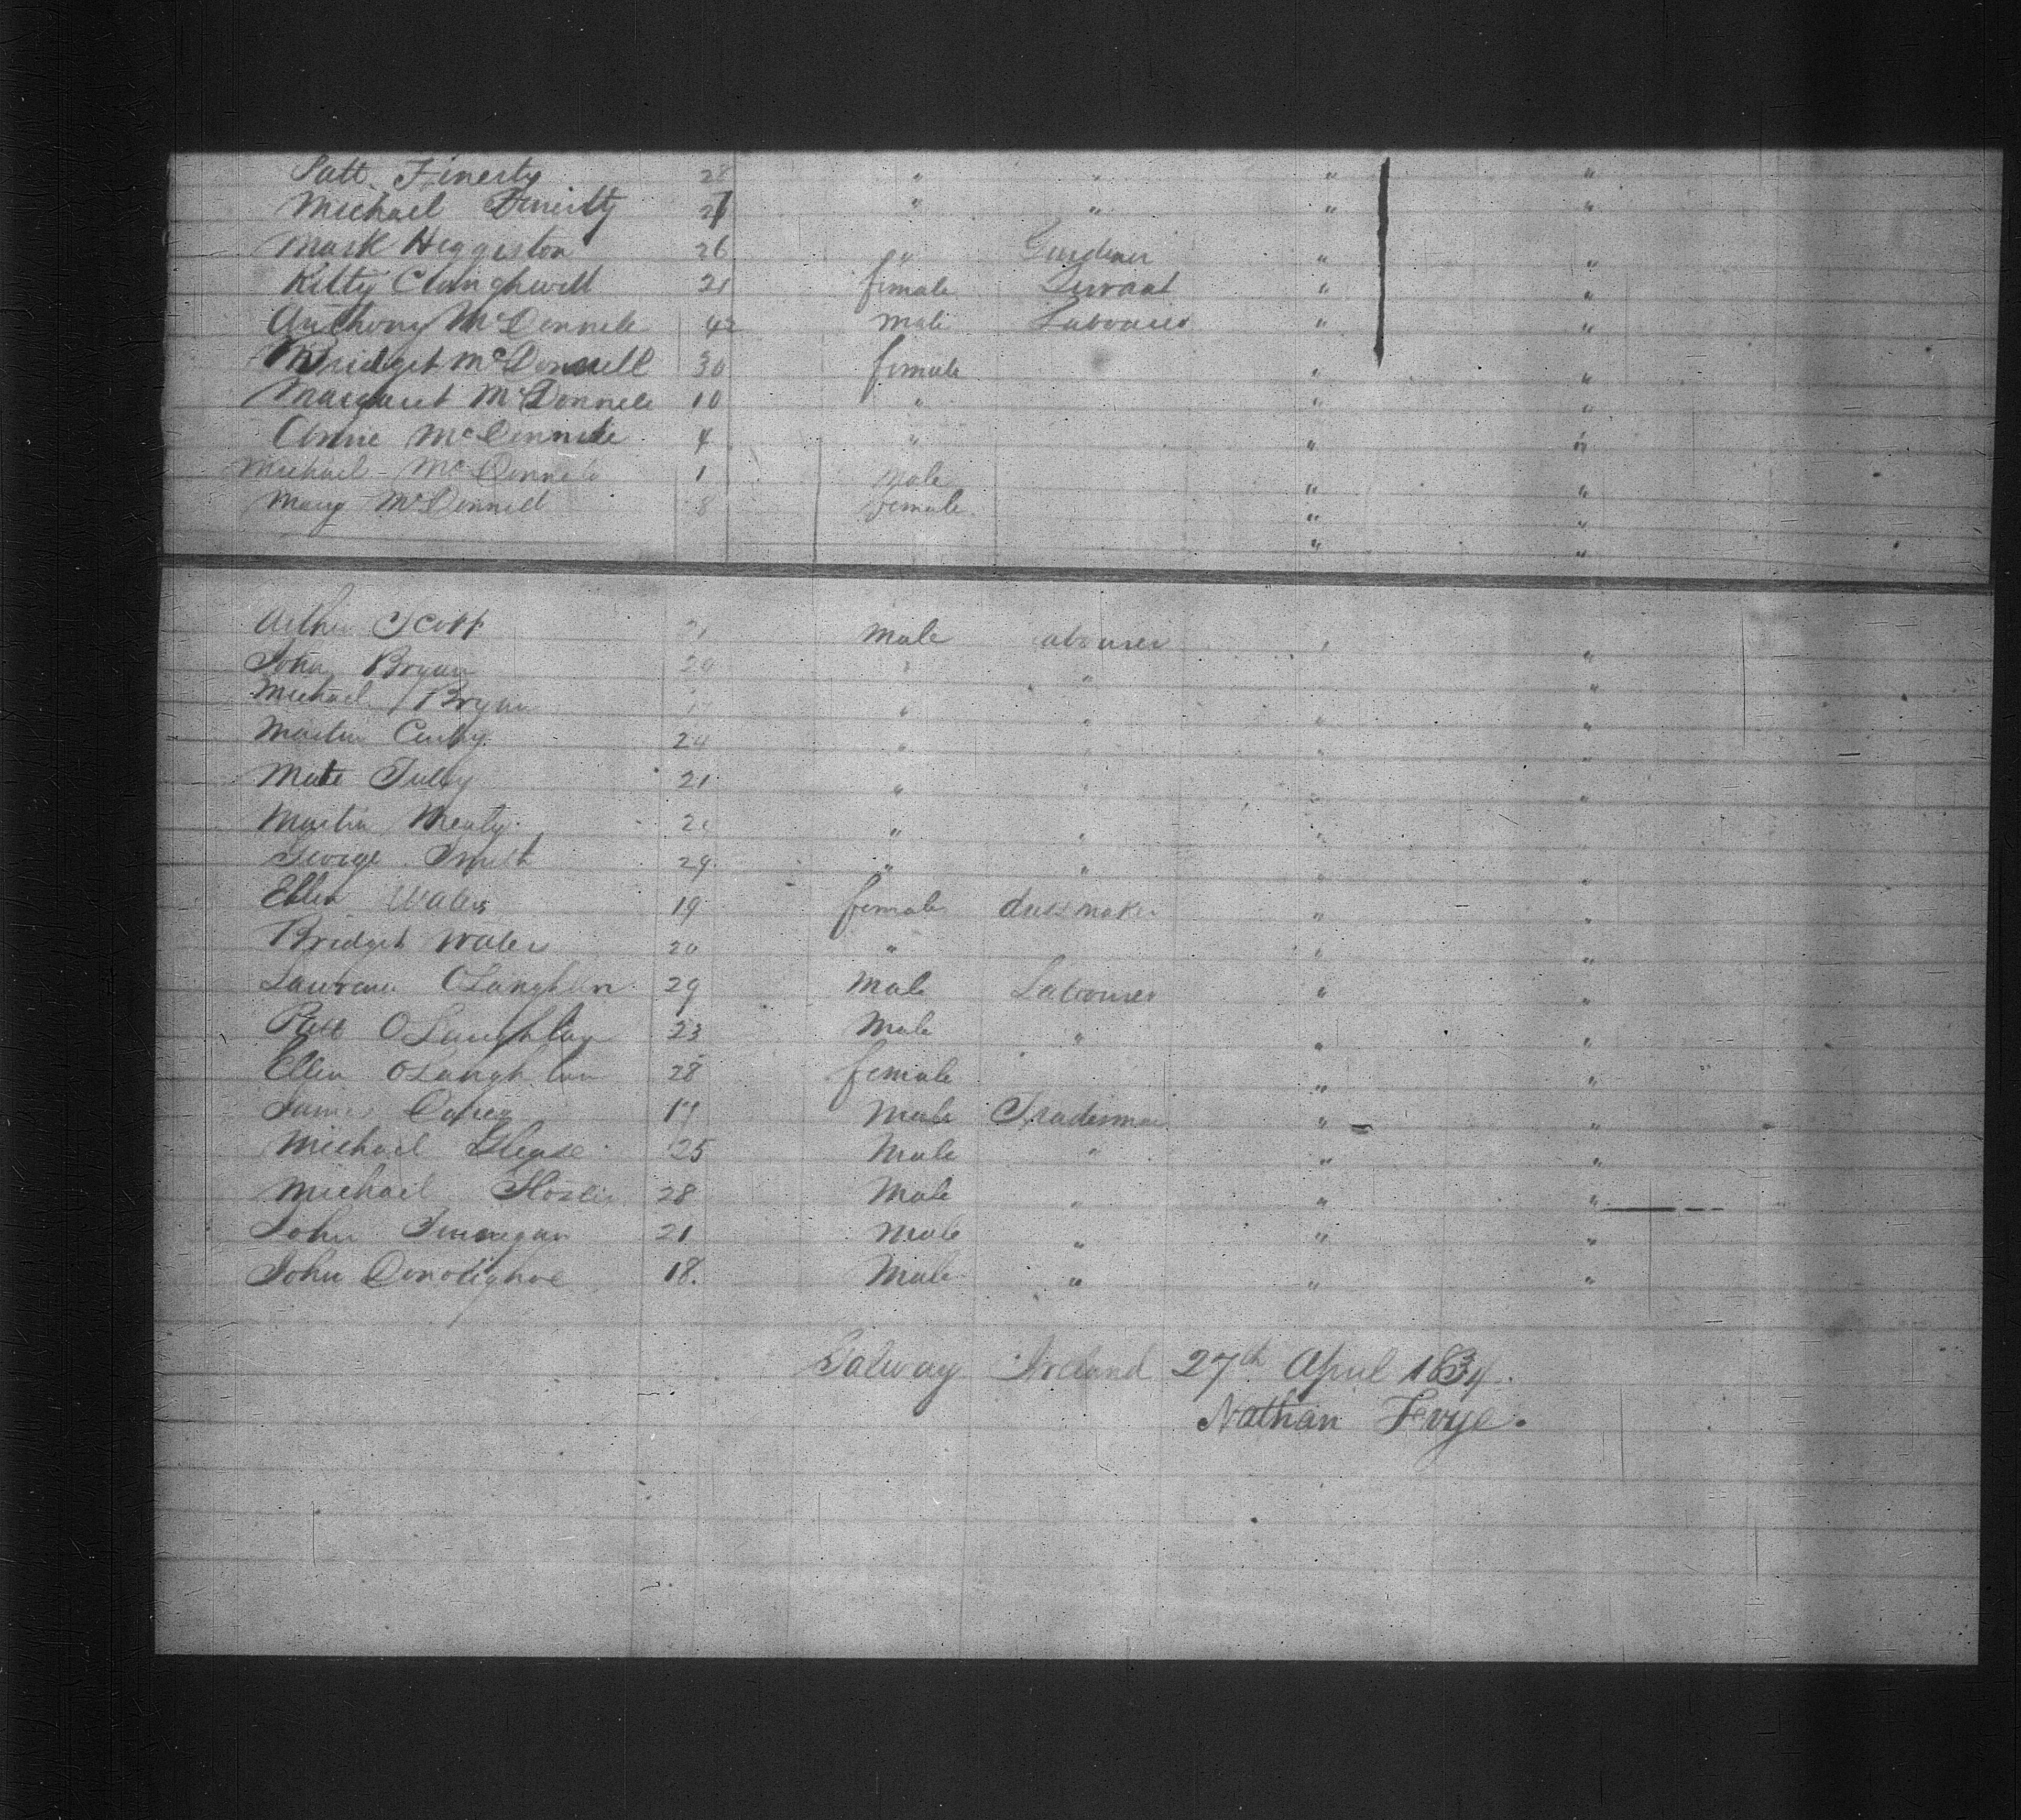 Patt Finerty 28 " " " "
Michael Finertty 21 " " " "
Mark Heggiston 26 " Gardiner " "
Kitty Claughwell 21 female Servant " "
Anthony McDonnele 42 male Labourer " "
Bridget McDonnell 30 female " "
Margaret McDonnele 10 " " "
Annie McDonnele 4 " " "
Michael McDonnele 1 male " "
Mary McDonnell 8 female " "
" "
Arthur Scott male Labourer " "
John Bryan 20 " " "
Michael Bryan " " " "
Martin 24 " " " "
Matt Tully 21 " " " "
Martin " " " "
George Smith 29 " " " "
Ellen Waters 19 female dressmaker " "
Bridget Waters 20 " " "
Lawrence OLaughlin 29 Male Labourer " "
Patt OLaughlin 23 Male " " "
Ellen OLaughlin 28 female " "
James 17 Male Tradesman " "
Michael Glease 25 Male " " "
Michael 28 Male " " "
John Finnegan 21 Male " " "
John Donoughoe 18. Male " " "
Galway Ireland 27th April 1834.
Nathan Frye.